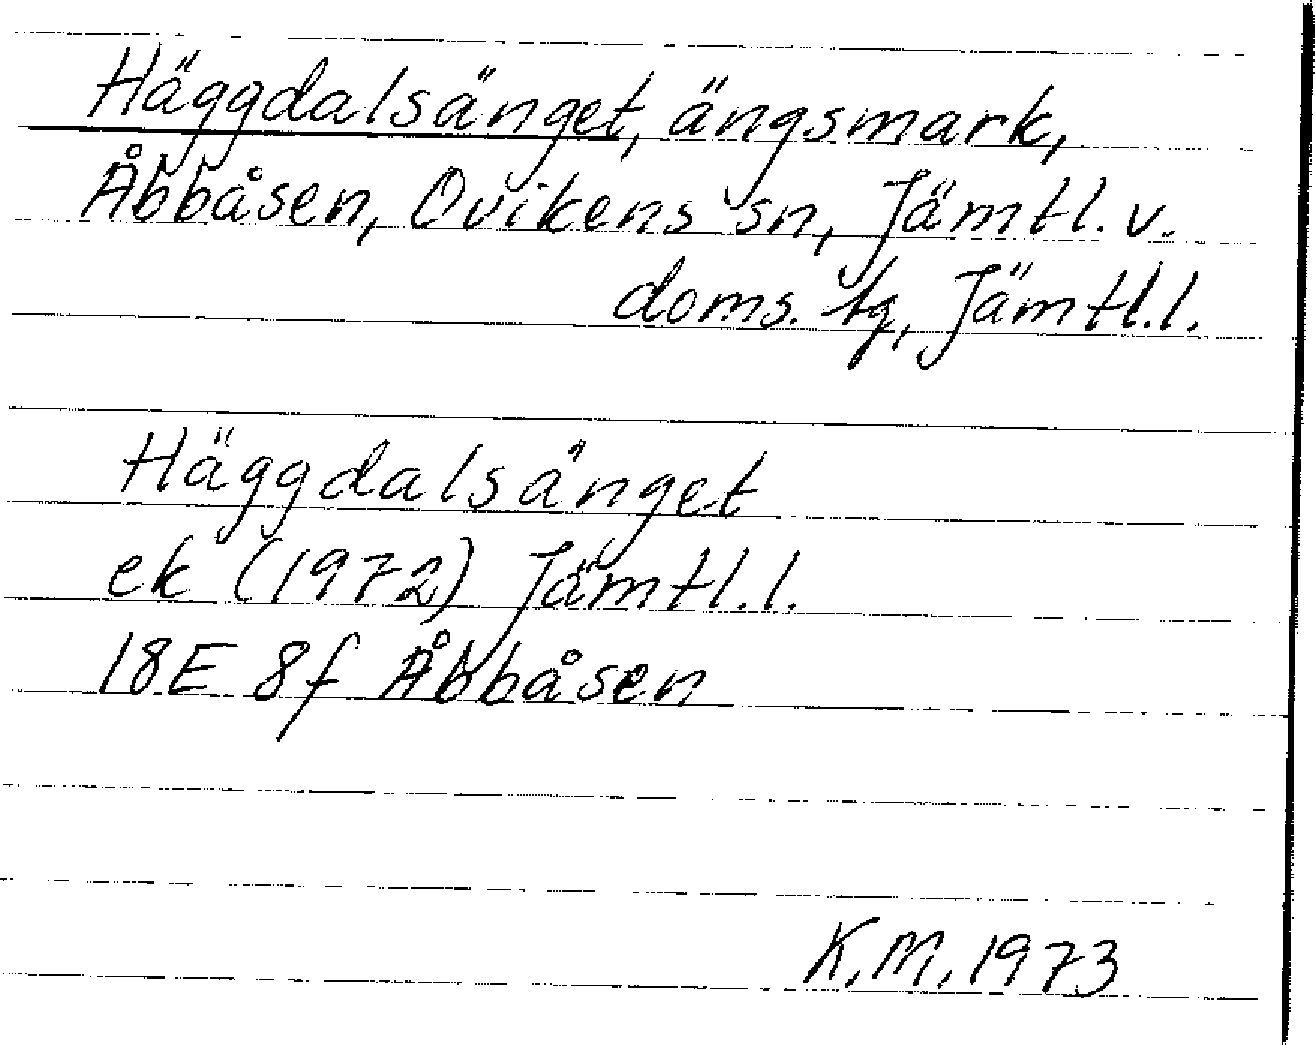 Häggdalsänget, ängsmark,
Åbbåsen, Ovikens sn, Jämtl. v.
doms. tg, Jämtl.l.
Häggdalsänget
ek (1972) Jämtl.l.
18E 8f Åbbåsen
K.M. 1973